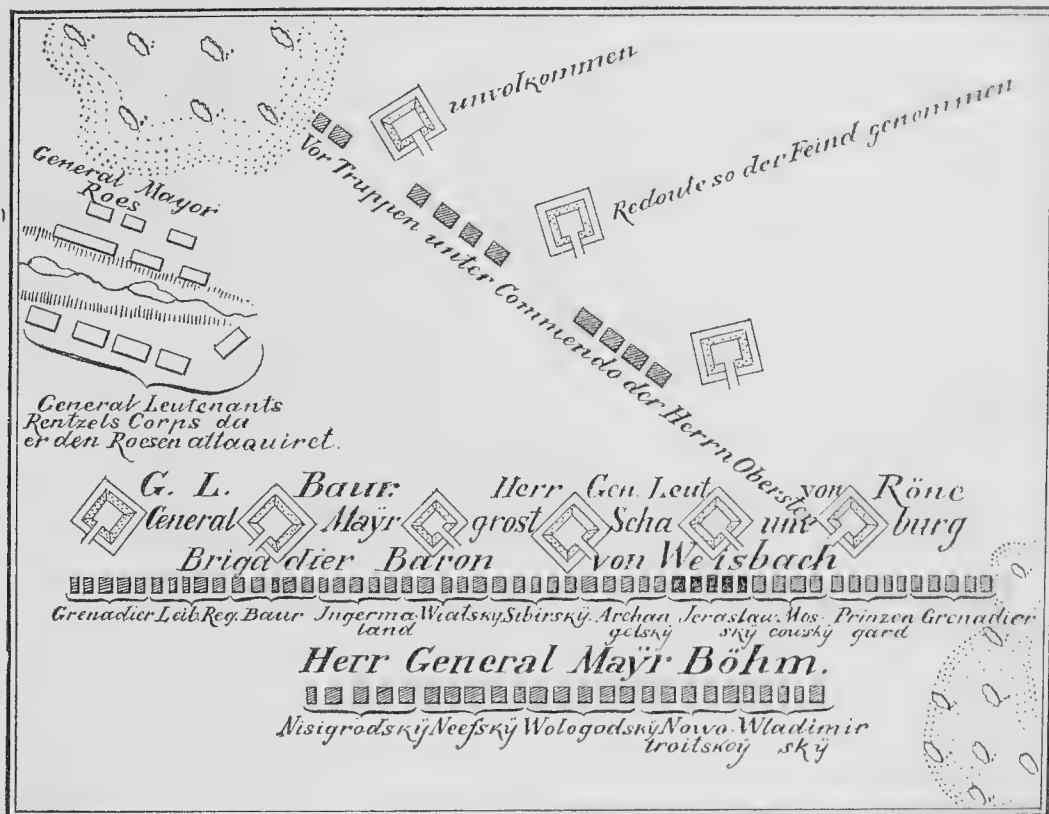 unvolkommen
Redoute so der Feind genommen
Vor Truppen unter Commendo der Herrn Obersten
General Mayor
Roes
General Leutenants
Rentzels Corps da
er den Roesen attaquiret.
G. L. Baur: Herr Gen. Leut von Röne
General Maÿr grost Scha umt burg
Brigadier Baron von Weisbach
Grenadier Leib. Reg. Baur Ingerma- Wiatsky Sibirskÿ Archan Jeraslau. Mos- Prinzen Grenadier
land gelskÿ skÿ couskÿ gard
Herr General Maÿr Böhm.
Nisigrodskÿ Neefskÿ Wologodskÿ Nowo- Wladimir
troitskoÿ skÿ